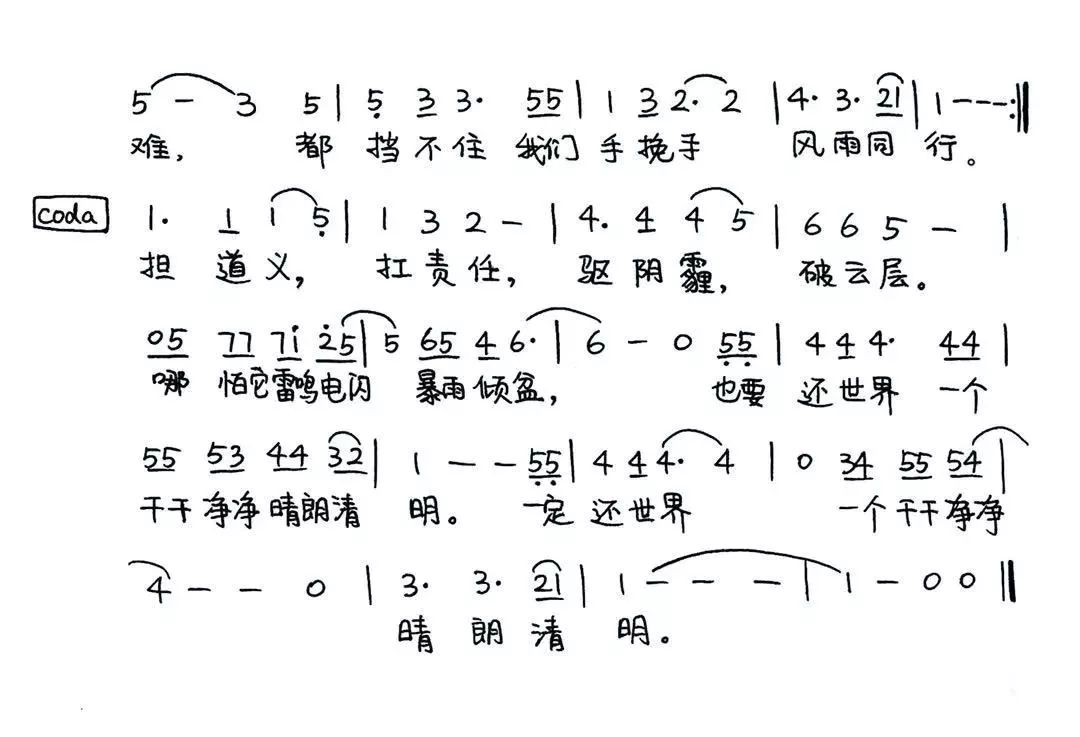 5 - 3 5 | 5 3 3· 55 | 1 3 2· 2 | 4· 3· 21 | 1 - - - :||
难， 都 挡 不 住 我们 手 挽 手 风 雨 同 行。
coda 1· 1 1 5 | 1 3 2 - | 4· 4 4 5 | 6 6 5 - |
担 道 义， 扛 责 任， 驱 阴 霾， 破 云 层。
05 77 71 25 | 5 65 4 6· | 6 - 0 55 | 4 4 4· 44 |
哪 怕它 雷鸣 电闪 暴雨 倾 盆， 也要 还 世 界 一个
55 53 44 32 | 1 - - 55 | 4 4 4· 4 | 0 34 55 54 |
干干 净净 晴朗 清 明。 一定 还 世 界 一个 干干 净净
4 - - 0 | 3· 3· 21 | 1 - - - | 1 - 0 0 ||
晴 朗 清 明。